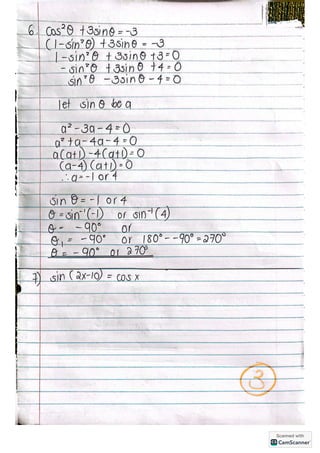 6. cos²θ + 3sinθ = -3
(1-sin²θ) + 3sinθ = -3
1 - sin²θ + 3sinθ + 3 = 0
- sin²θ + 3sinθ + 4 = 0
sin²θ - 3sinθ - 4 = 0
let sinθ be a
a² - 3a - 4 = 0
a² + a - 4a - 4 = 0
a(a+1) - 4(a+1) = 0
(a-4)(a+1) = 0
∴ a = -1 or 4
sinθ = -1 or 4
θ = sin⁻¹(-1) or sin⁻¹(4)
θ = -90° or
θ₁ = -90° or 180° - -90° = 270°
θ = -90° or 270°
7) sin(2x-10) = cos x
3
Scanned with
CS CamScanner